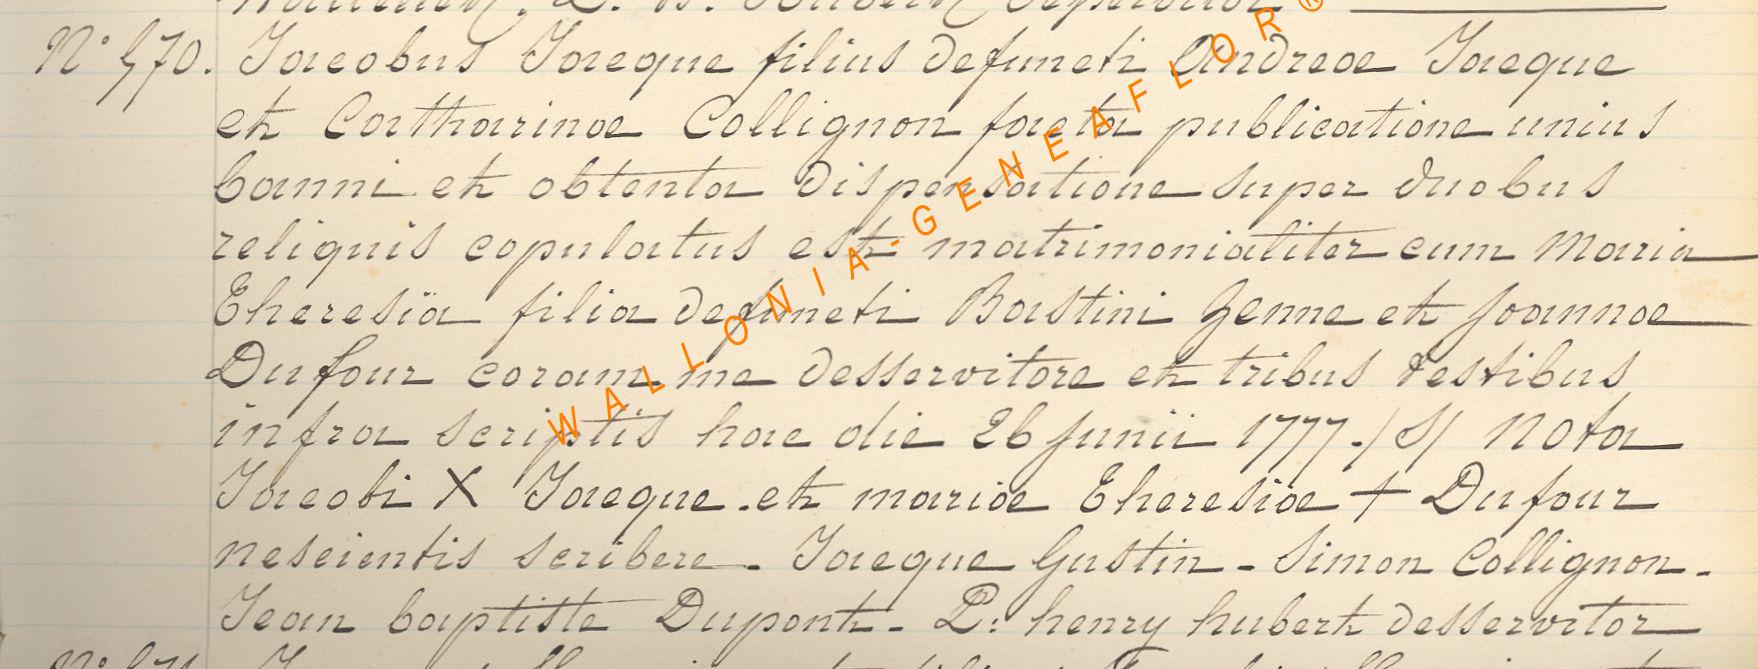 N° 570. Jacobus Jacque filius defuncti Andreae Jacque
et Catharinae Collignon facta publicatione unius
banni et obtenta dispensatione super duobus
reliquis copulatus est matrimonialiter cum Maria
Theresiä filia defuncti Bastini Genne et Joannae
Dufour coram me desservitore et tribus testibus
infra scriptis hac die 26 Junii 1777. /S/ Nota
Jacobi X Jacque. et mariae Theresiae + Dufour
nescientis scribere - Jacque Gustin - Simon Collignon.
Jean baptiste Dupont - P. henry hubert desservitor
WALLONIA-GENEAFLOR®